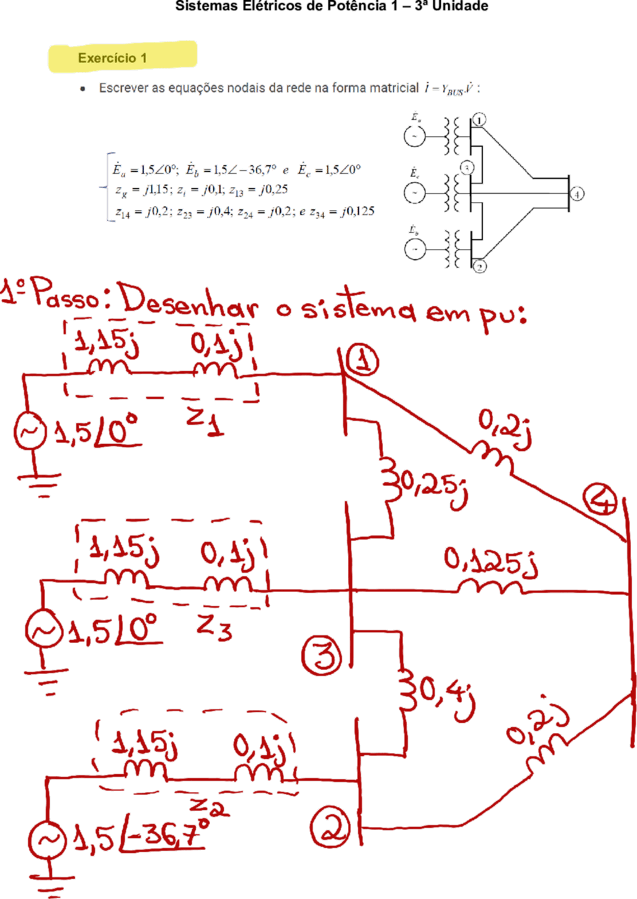 Sistemas Elétricos de Potência 1 – 3ª Unidade
Exercício 1
• Escrever as equações nodais da rede na forma matricial İ = Y_BUS.V̇ :
Ė_a = 1,5∠0°; Ė_b = 1,5∠−36,7° e Ė_c = 1,5∠0°
z_g = j1,15; z_t = j0,1; z_13 = j0,25
z_14 = j0,2; z_23 = j0,4; z_24 = j0,2; e z_34 = j0,125
Ė_a
1
Ė_c
3
4
Ė_b
2
1º Passo: Desenhar o sistema em pu:
1,15j 0,1j
1
1,5∠0°
Z1
0,2j
0,25j
4
1,15j 0,1j
0,125j
1,5∠0°
Z3
3
0,4j
0,2j
1,15j 0,1j
Z2
2
1,5∠-36,7°